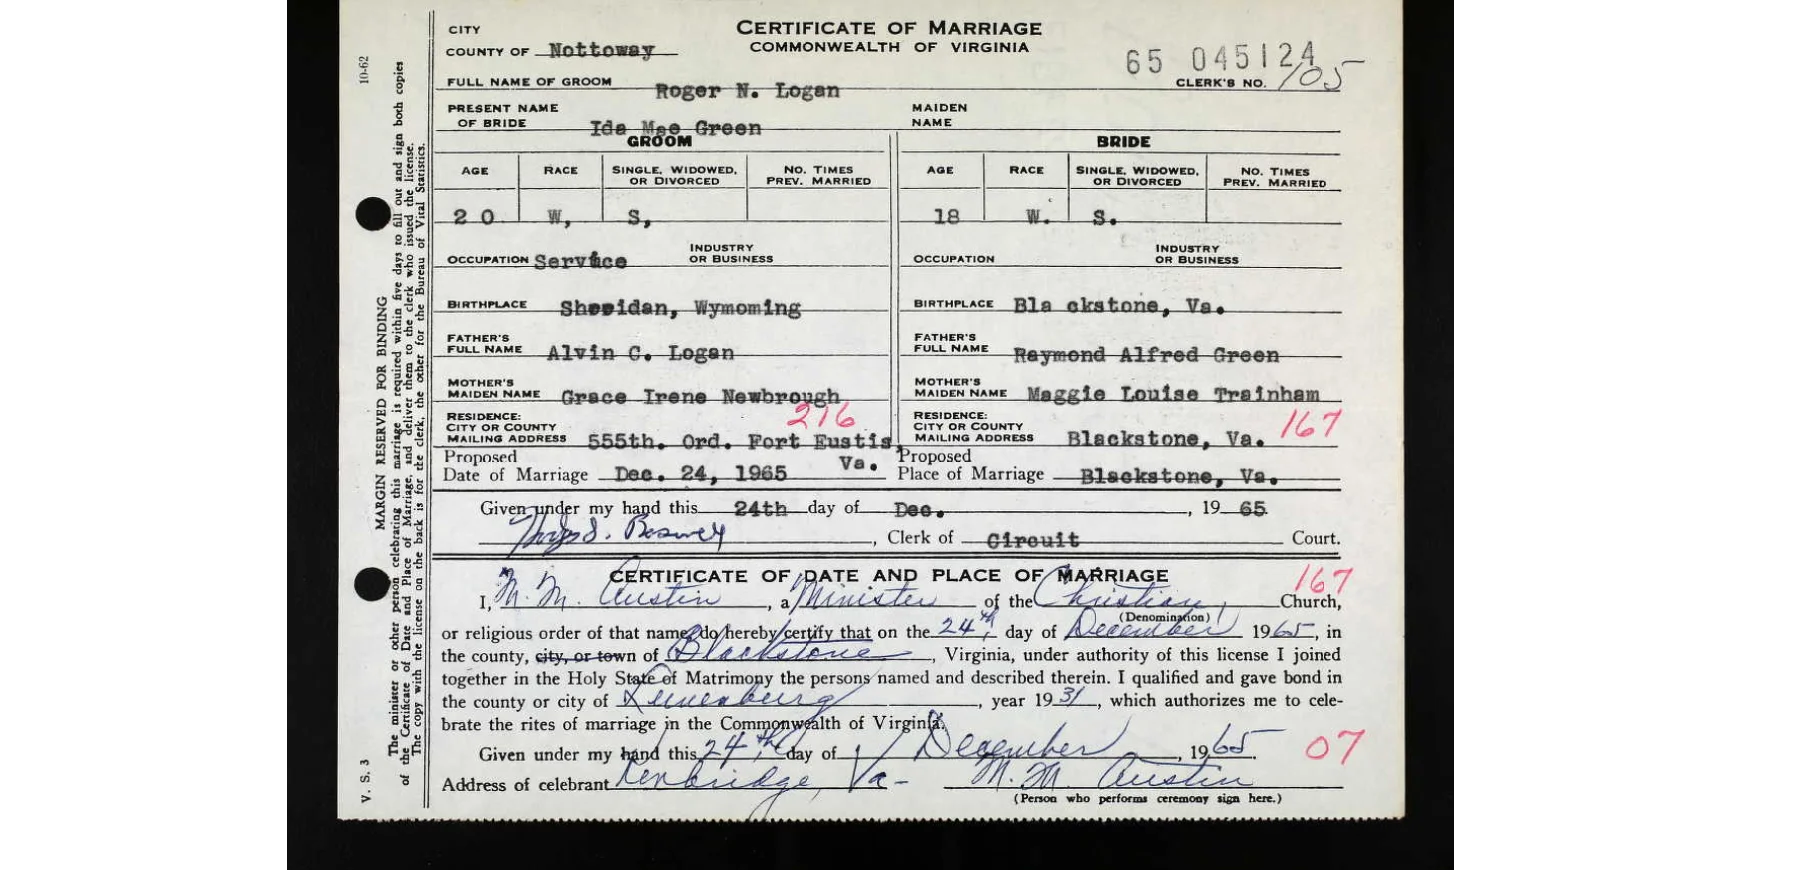 CERTIFICATE OF MARRIAGE
COMMONWEALTH OF VIRGINIA
CITY
COUNTY OF Nottoway
65 045124
CLERK'S NO. 105
FULL NAME OF GROOM Roger N. Logan
PRESENT NAME OF BRIDE Ida Mae Green MAIDEN NAME
GROOM BRIDE
AGE RACE SINGLE, WIDOWED, OR DIVORCED NO. TIMES PREV. MARRIED AGE RACE SINGLE, WIDOWED, OR DIVORCED NO. TIMES PREV. MARRIED
20 W, S, 18 W. S.
OCCUPATION Service INDUSTRY OR BUSINESS OCCUPATION INDUSTRY OR BUSINESS
BIRTHPLACE Sheridan, Wymoming BIRTHPLACE Bla ckstone, Va.
FATHER'S FULL NAME Alvin C. Logan FATHER'S FULL NAME Raymond Alfred Green
MOTHER'S MAIDEN NAME Grace Irene Newbrough MOTHER'S MAIDEN NAME Maggie Louise Trainham
216 167
RESIDENCE: CITY OR COUNTY MAILING ADDRESS 555th. Ord. Fort Eustis, Va. RESIDENCE: CITY OR COUNTY MAILING ADDRESS Blackstone, Va.
Proposed Date of Marriage Dec. 24, 1965 Proposed Place of Marriage Blackstone, Va.
Given under my hand this 24th day of Dec. , 19 65.
, Clerk of Circuit Court.
CERTIFICATE OF DATE AND PLACE OF MARRIAGE 167
I, M. M. Austin , a Minister of the Christian Church,
(Denomination)
or religious order of that name, do hereby certify that on the 24th, day of December 1965, in
the county, city, or town of Blackstone , Virginia, under authority of this license I joined
together in the Holy State of Matrimony the persons named and described therein. I qualified and gave bond in
the county or city of Lunenburg , year 1931, which authorizes me to cele-
brate the rites of marriage in the Commonwealth of Virginia.
Given under my hand this 24th, day of December , 1965. 07
Address of celebrant Kenbridge, Va- M. M. Austin
(Person who performs ceremony sign here.)
10-62
MARGIN RESERVED FOR BINDING
The minister or other person celebrating this marriage is required within five days to fill out and sign both copies
of the Certificate of Date and Place of Marriage, and deliver them to the clerk who issued the license.
The copy with the license on the back is for the clerk, the other for the Bureau of Vital Statistics.
V. S. 3